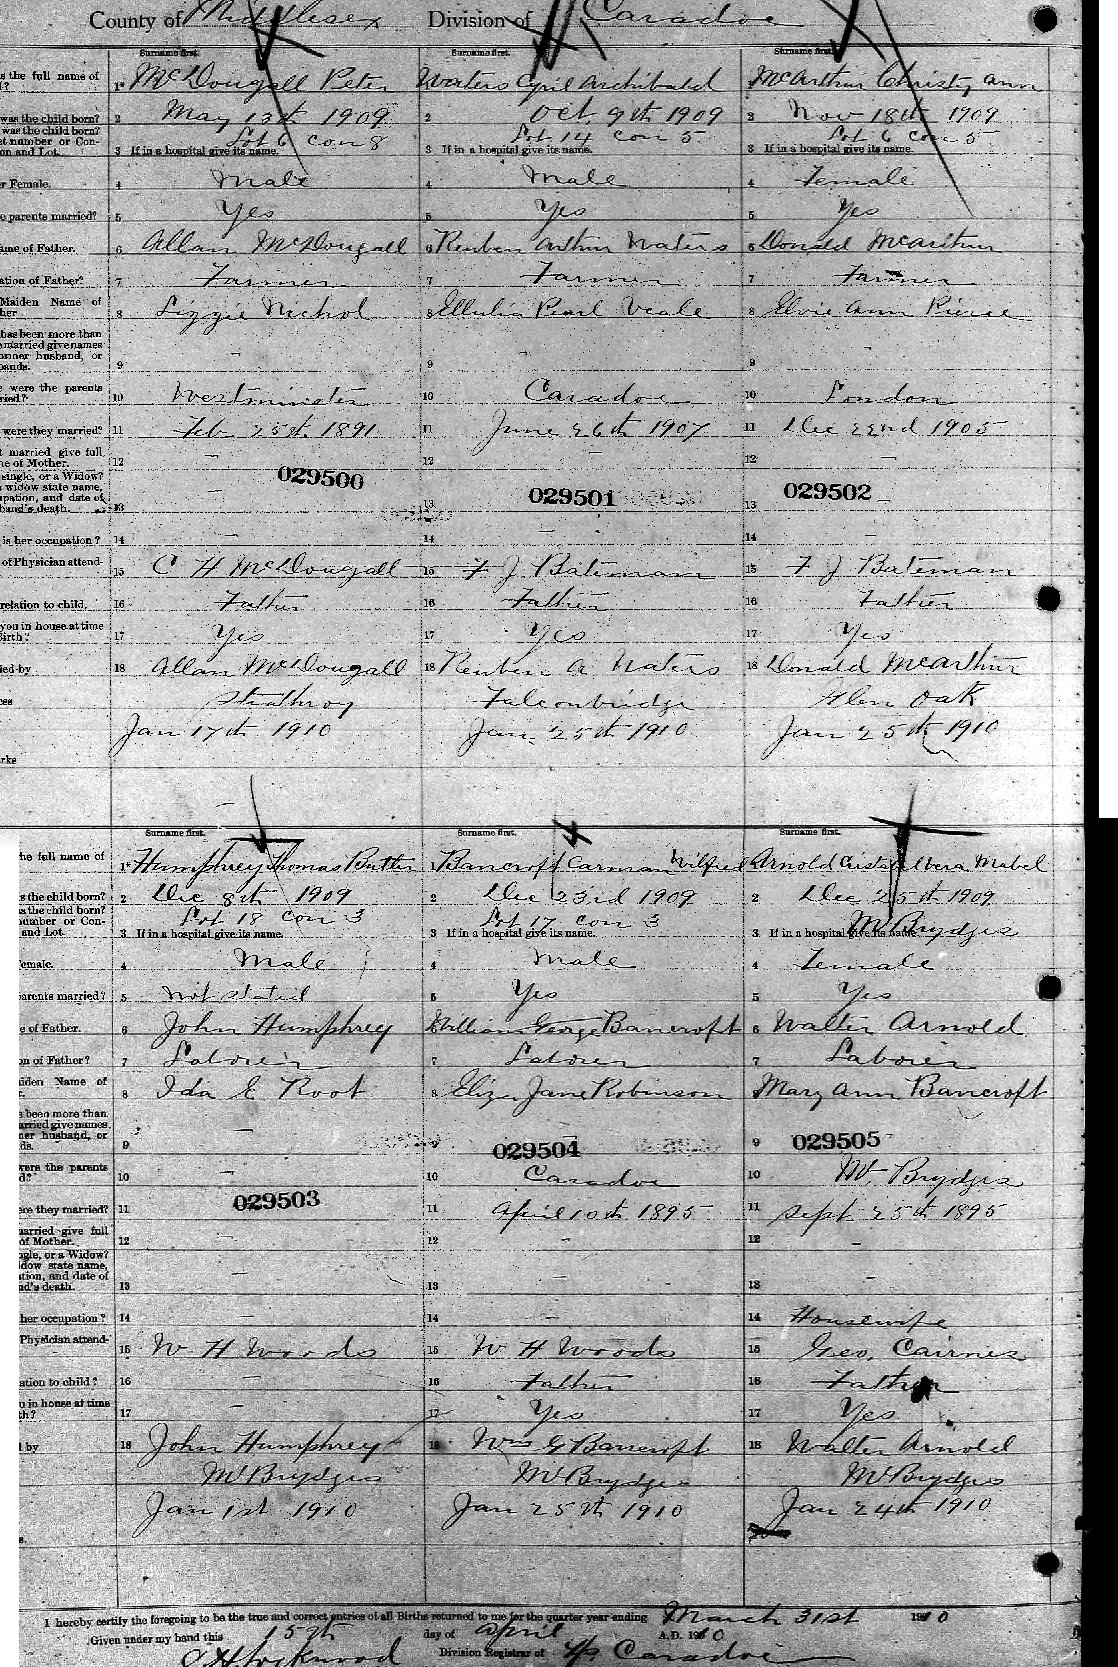 County of Middlesex Division of Caradoc
Surname first. Surname first. Surname first.
s the full name of 1 McDougall Peter Waters Cyril Archibald McArthur Christy Ann
was the child born? 2 May 13th 1909 2 Oct 9th 1909 2 Nov 18th 1909
was the child born? Lot 6 con 8 Lot 14 con 5 Lot 6 con 5
t number or Con-
on and Lot. 3 If in a hospital give its name. 3 If in a hospital give its name. 3 If in a hospital give its name.
r Female. 4 Male 4 Male 4 Female
e parents married? 5 Yes 5 Yes 5 Yes
ame of Father. 6 Allan McDougall 6 Reuben Arthur Waters 6 Donald McArthur
ation of Father? 7 Farmer 7 Farmer 7 Farmer
Maiden Name of
her 8 Lizzie Nichol 8 Pearl Veale 8 Elvie Ann Pierce
has been more than
married give names
ormer husband, or
bands. 9 - 9 - 9 -
e were the parents
ried? 10 Westminster 10 Caradoc 10 London
were they married? 11 Feb 25th 1891 11 June 26th 1907 11 Dec 22nd 1905
t married give full
e of Mother. 12 - 12 - 12 -
single, or a Widow?
widow state name,
upation, and date of
band's death. 13 029500 13 029501 13 029502
is her occupation? 14 - 14 - 14 -
of Physician attend- 15 C H McDougall 15 F J Bateman 15 F J Bateman
relation to child. 16 Father 16 Father 16 Father
you in house at time
Birth? 17 Yes 17 Yes 17 Yes
ied by 18 Allan McDougall 18 Reuben A Waters 18 Donald McArthur
ces Strathroy Falconbridge Glen Oak
Jan 17th 1910 Jan 25th 1910 Jan 25th 1910
rks
Surname first. Surname first. Surname first.
he full name of 1 Humphrey Thomas Butler 1 Bancroft Carman Wilfred Arnold Mabel
s the child born? 2 Dec 8th 1909 2 Dec 23rd 1909 2 Dec 25th 1909
s the child born? Lot 18 con 3 Lot 17 con 3 Mt Brydges
number or Con-
and Lot. 3 If in a hospital give its name. 3 If in a hospital give its name. 3 If in a hospital give its name.
emale. 4 Male 4 Male 4 Female
arents married? 5 Not stated 5 Yes 5 Yes
e of Father. 6 John Humphrey William George Bancroft 6 Walter Arnold
on of Father? 7 Laborer 7 Laborer 7 Laborer
iden Name of
r. 8 Ida E Root 8 Eliza Jane Robinson 8 Mary Ann Bancroft
been more than
arried give names
ner husband, or
ds. 9 - 9 029504 9 029505
were the parents
d? 10 - 10 Caradoc 10 Mt. Brydges
ere they married? 11 029503 11 April 10th 1895 11 Sept 25th 1895
arried give full
of Mother. 12 - 12 - 12 -
ngle, or a Widow?
dow state name,
ation, and date of
nd's death. 13 - 13 - 13 -
her occupation? 14 - 14 - 14 Housewife
Physician attend- 15 W H Woods 15 W H Woods 15 Geo. Cairnes
ation to child? 16 - 16 Father 16 Father
u in house at time
th? 17 - 17 Yes 17 Yes
l by 18 John Humphrey 18 Wm G Bancroft 18 Walter Arnold
Mt Brydges Mt Brydges Mt Brydges
Jan 1st 1910 Jan 25th 1910 Jan 24th 1910
s.
I hereby certify the foregoing to be the true and correct entries of all Births returned to me for the quarter year ending March 31st 1910
Given under my hand this 15th day of April A.D. 1910
Lockwood Division Registrar of Caradoc